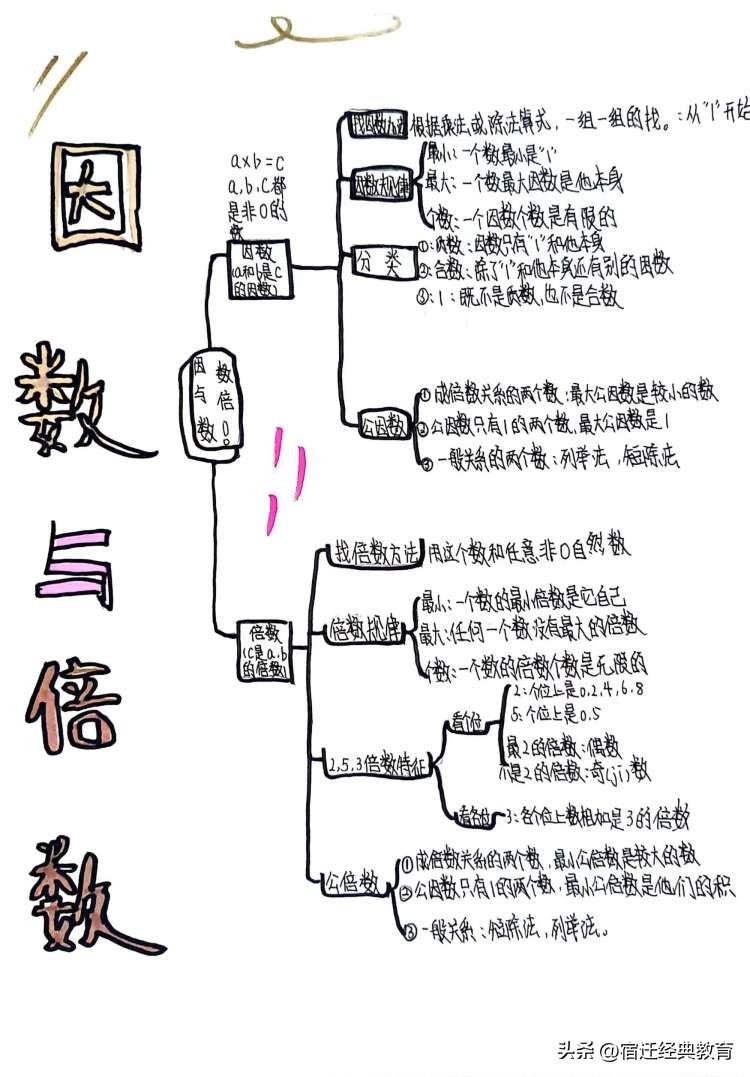 因
数
与
倍
数
a×b=c
a,b,c都
是非0的
数
因数
(a和b是c
的因数)
因数
与倍
数!
找因数方法
根据乘法或除法算式，一组一组的找。：从"1"开始
因数规律
最小：一个数最小是"1"
最大：一个数最大因数是他本身
个数：一个因数个数是有限的
分类
①：质数：因数只有"1"和他本身
②：合数：除了"1"和他本身还有别的因数
③：1：既不是质数，也不是合数
公因数
①成倍数关系的两个数：最大公因数是较小的数
②公因数只有1的两个数，最大公因数是1
③一般关系的两个数：列举法，短除法
倍数
(c是a,b
的倍数)
找倍数方法
用这个数和任意非0自然数
倍数规律
最小：一个数的最小倍数是它自己
最大：任何一个数没有最大的倍数
个数：一个数的倍数个数是无限的
2,5,3倍数特征
看个位
2：个位上是0,2,4,6,8
5：个位上是0,5
是2的倍数：偶数
不是2的倍数：奇(jī)数
看各位
3：各个位上数相加是3的倍数
公倍数
①成倍数关系的两个数，最小公倍数是较大的数
②公因数只有1的两个数，最小公倍数是他们的积
③一般关系：短除法，列举法。
头条 @宿迁经典教育